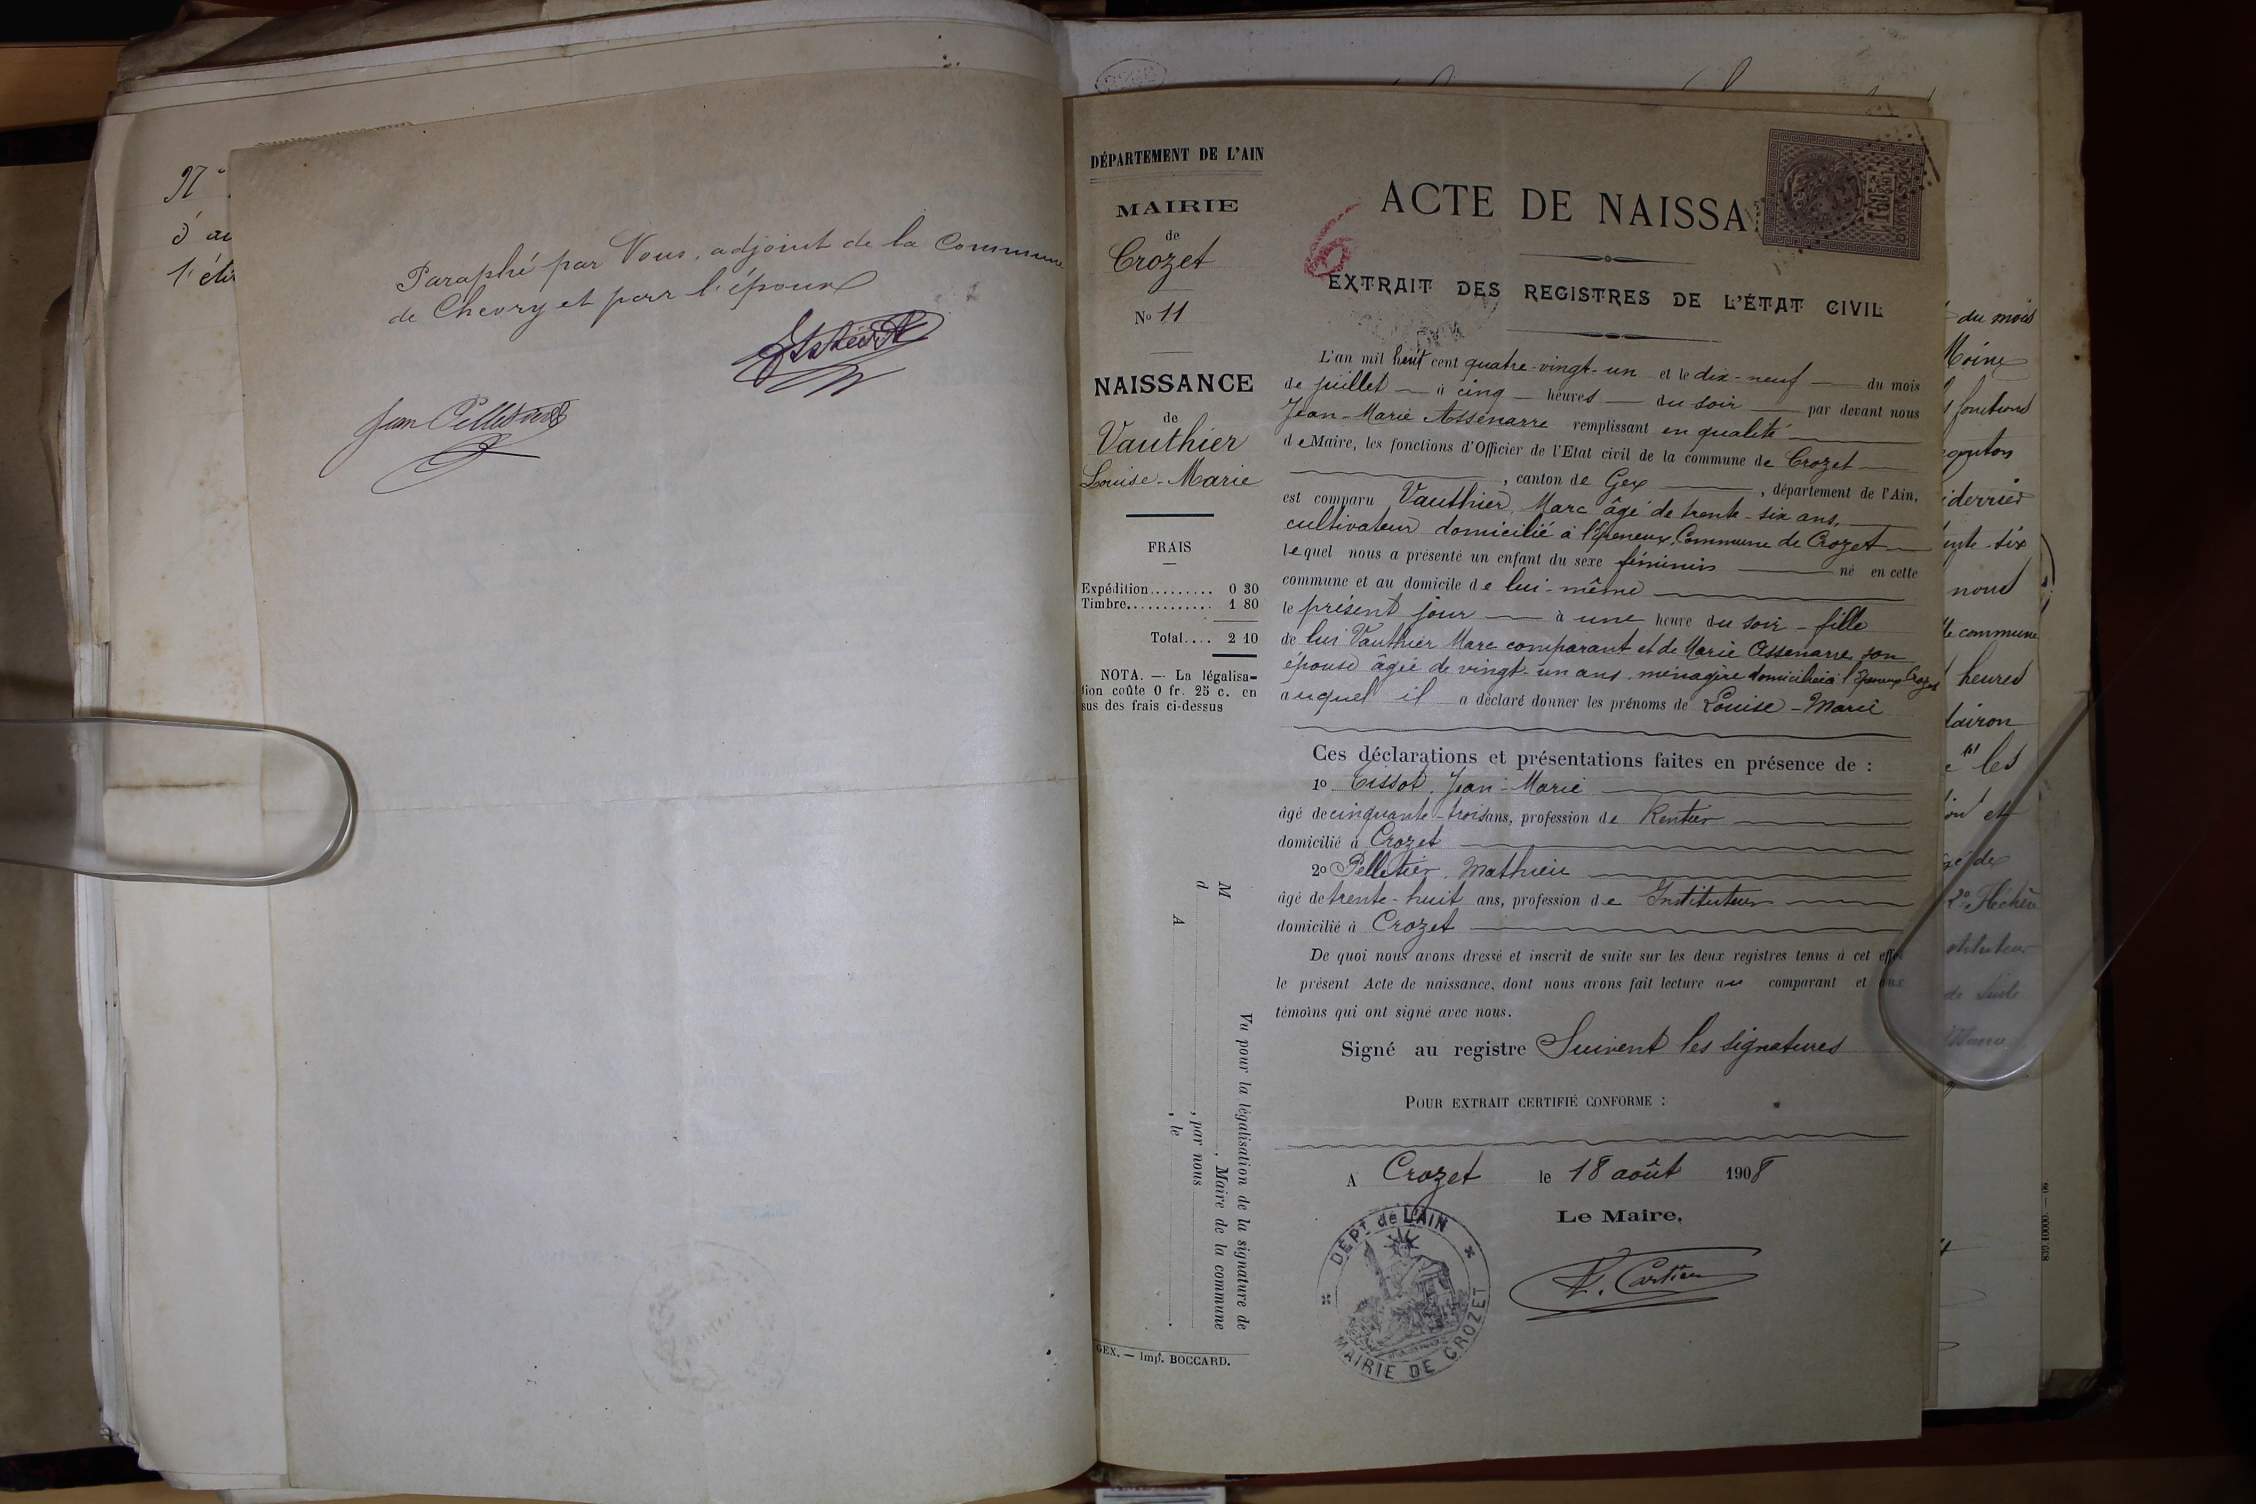 N°
d'au
l'éta
Paraphé par Nous, adjoint de la Commune
de Chevry et par l'époux
Jean Pelletier
DÉPARTEMENT DE L'AIN
MAIRIE
de
Crozet
No 11
NAISSANCE
de
Vauthier
Louise-Marie
FRAIS
Expédition......... 0 30
Timbre............ 1 80
Total.... 2 10
NOTA. — La légalisa-
tion coûte 0 fr. 25 c. en
sus des frais ci-dessus
Vu pour la légalisation de la signature de
M , Maire de la commune
d , par nous
A , le .
GEX. — Imp. BOCCARD.
6
ACTE DE NAISSA
EXTRAIT DES REGISTRES DE L'ÉTAT CIVIL
L'an mil huit cent quatre-vingt-un et le dix-neuf du mois
de juillet à cinq heures du soir par devant nous
Jean-Marie Assenarre remplissant en qualité
de Maire, les fonctions d'Officier de l'Etat civil de la commune de Crozet
, canton de Gex , département de l'Ain,
est comparu Vauthier, Marc âgé de trente-six ans,
cultivateur domicilié à l'Epeneux, Commune de Crozet
lequel nous a présenté un enfant du sexe féminin né en cette
commune et au domicile de lui-même
le présent jour à une heure du soir - fille
de lui Vauthier Marc comparant et de Marie Assenarre son
épouse âgée de vingt-un ans, ménagère domiciliée à l'Epeneux Crozet
auquel il a déclaré donner les prénoms de Louise-Marie
Ces déclarations et présentations faites en présence de :
1o Tissot, Jean-Marie
âgé de cinquante-trois ans, profession de Rentier
domicilié à Crozet
2o Pelletier, Mathieu
âgé de trente-huit ans, profession de Instituteur
domicilié à Crozet
De quoi nous avons dressé et inscrit de suite sur les deux registres tenus à cet effet
le présent Acte de naissance, dont nous avons fait lecture au comparant et aux
témoins qui ont signé avec nous.
Signé au registre Suivent les signatures
POUR EXTRAIT CERTIFIÉ CONFORME :
A Crozet le 18 août 1908
Le Maire,
DÉPT de L'AIN
MAIRIE DE CROZET
F. Cartier
du mois
Moine
fonctions
nous
commune
heures
les
et